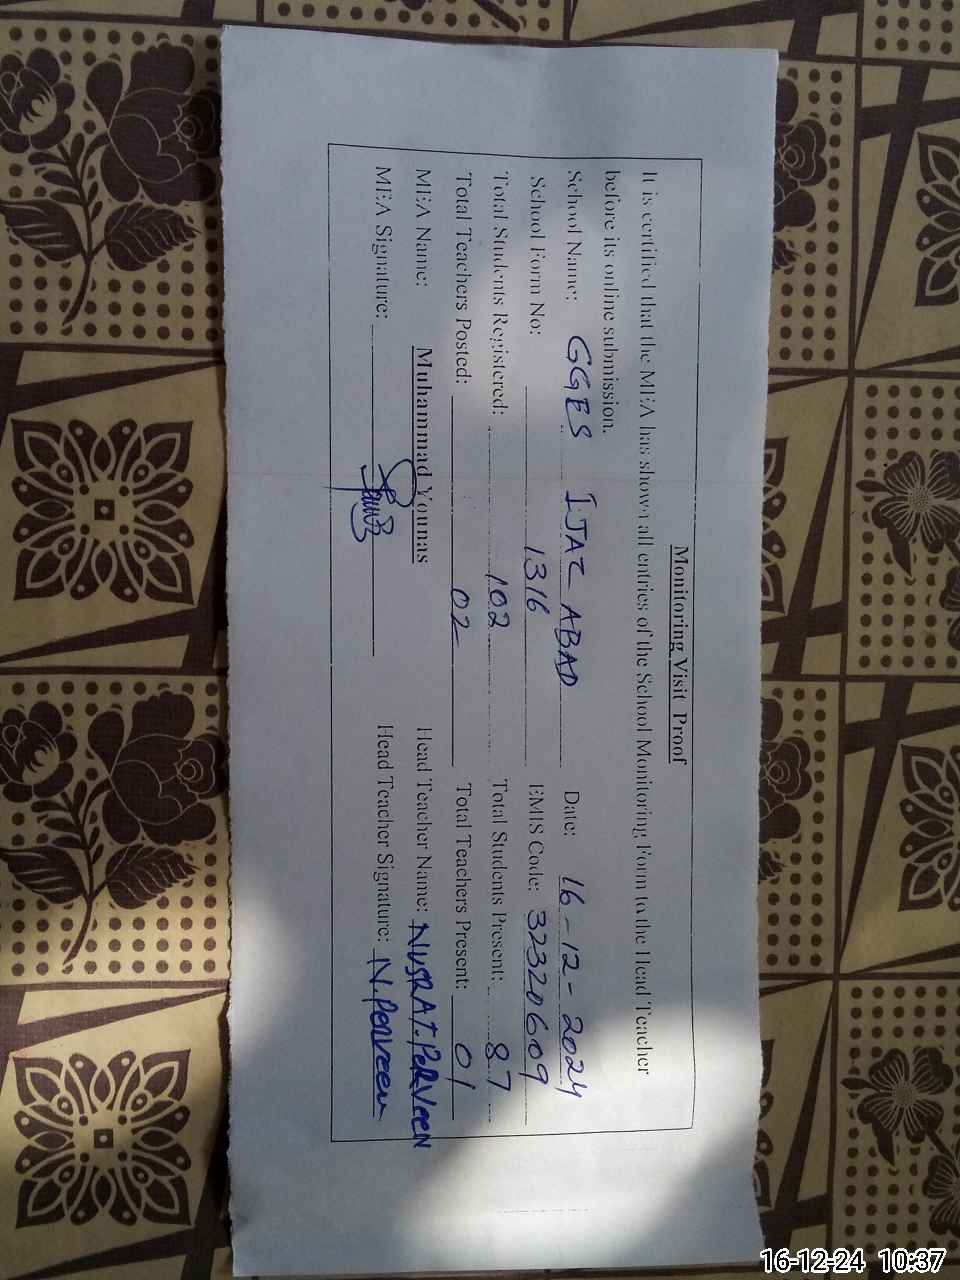 Monitoring Visit Proof
It is certified that the MEA has shown all entries of the School Monitoring Form to the Head Teacher
before its online submission.
School Name: GGES IJAZ ABAD Date: 16-12-2024
School Form No: 1316 EMIS Code: 32320609
Total Students Registered: 102 Total Students Present: 87
Total Teachers Posted: 02 Total Teachers Present: 01
MEA Name: Muhammad Younas Head Teacher Name: NUSRAT.PERVEEN
MEA Signature: Head Teacher Signature: N.Perveen
16-12-24 10:37